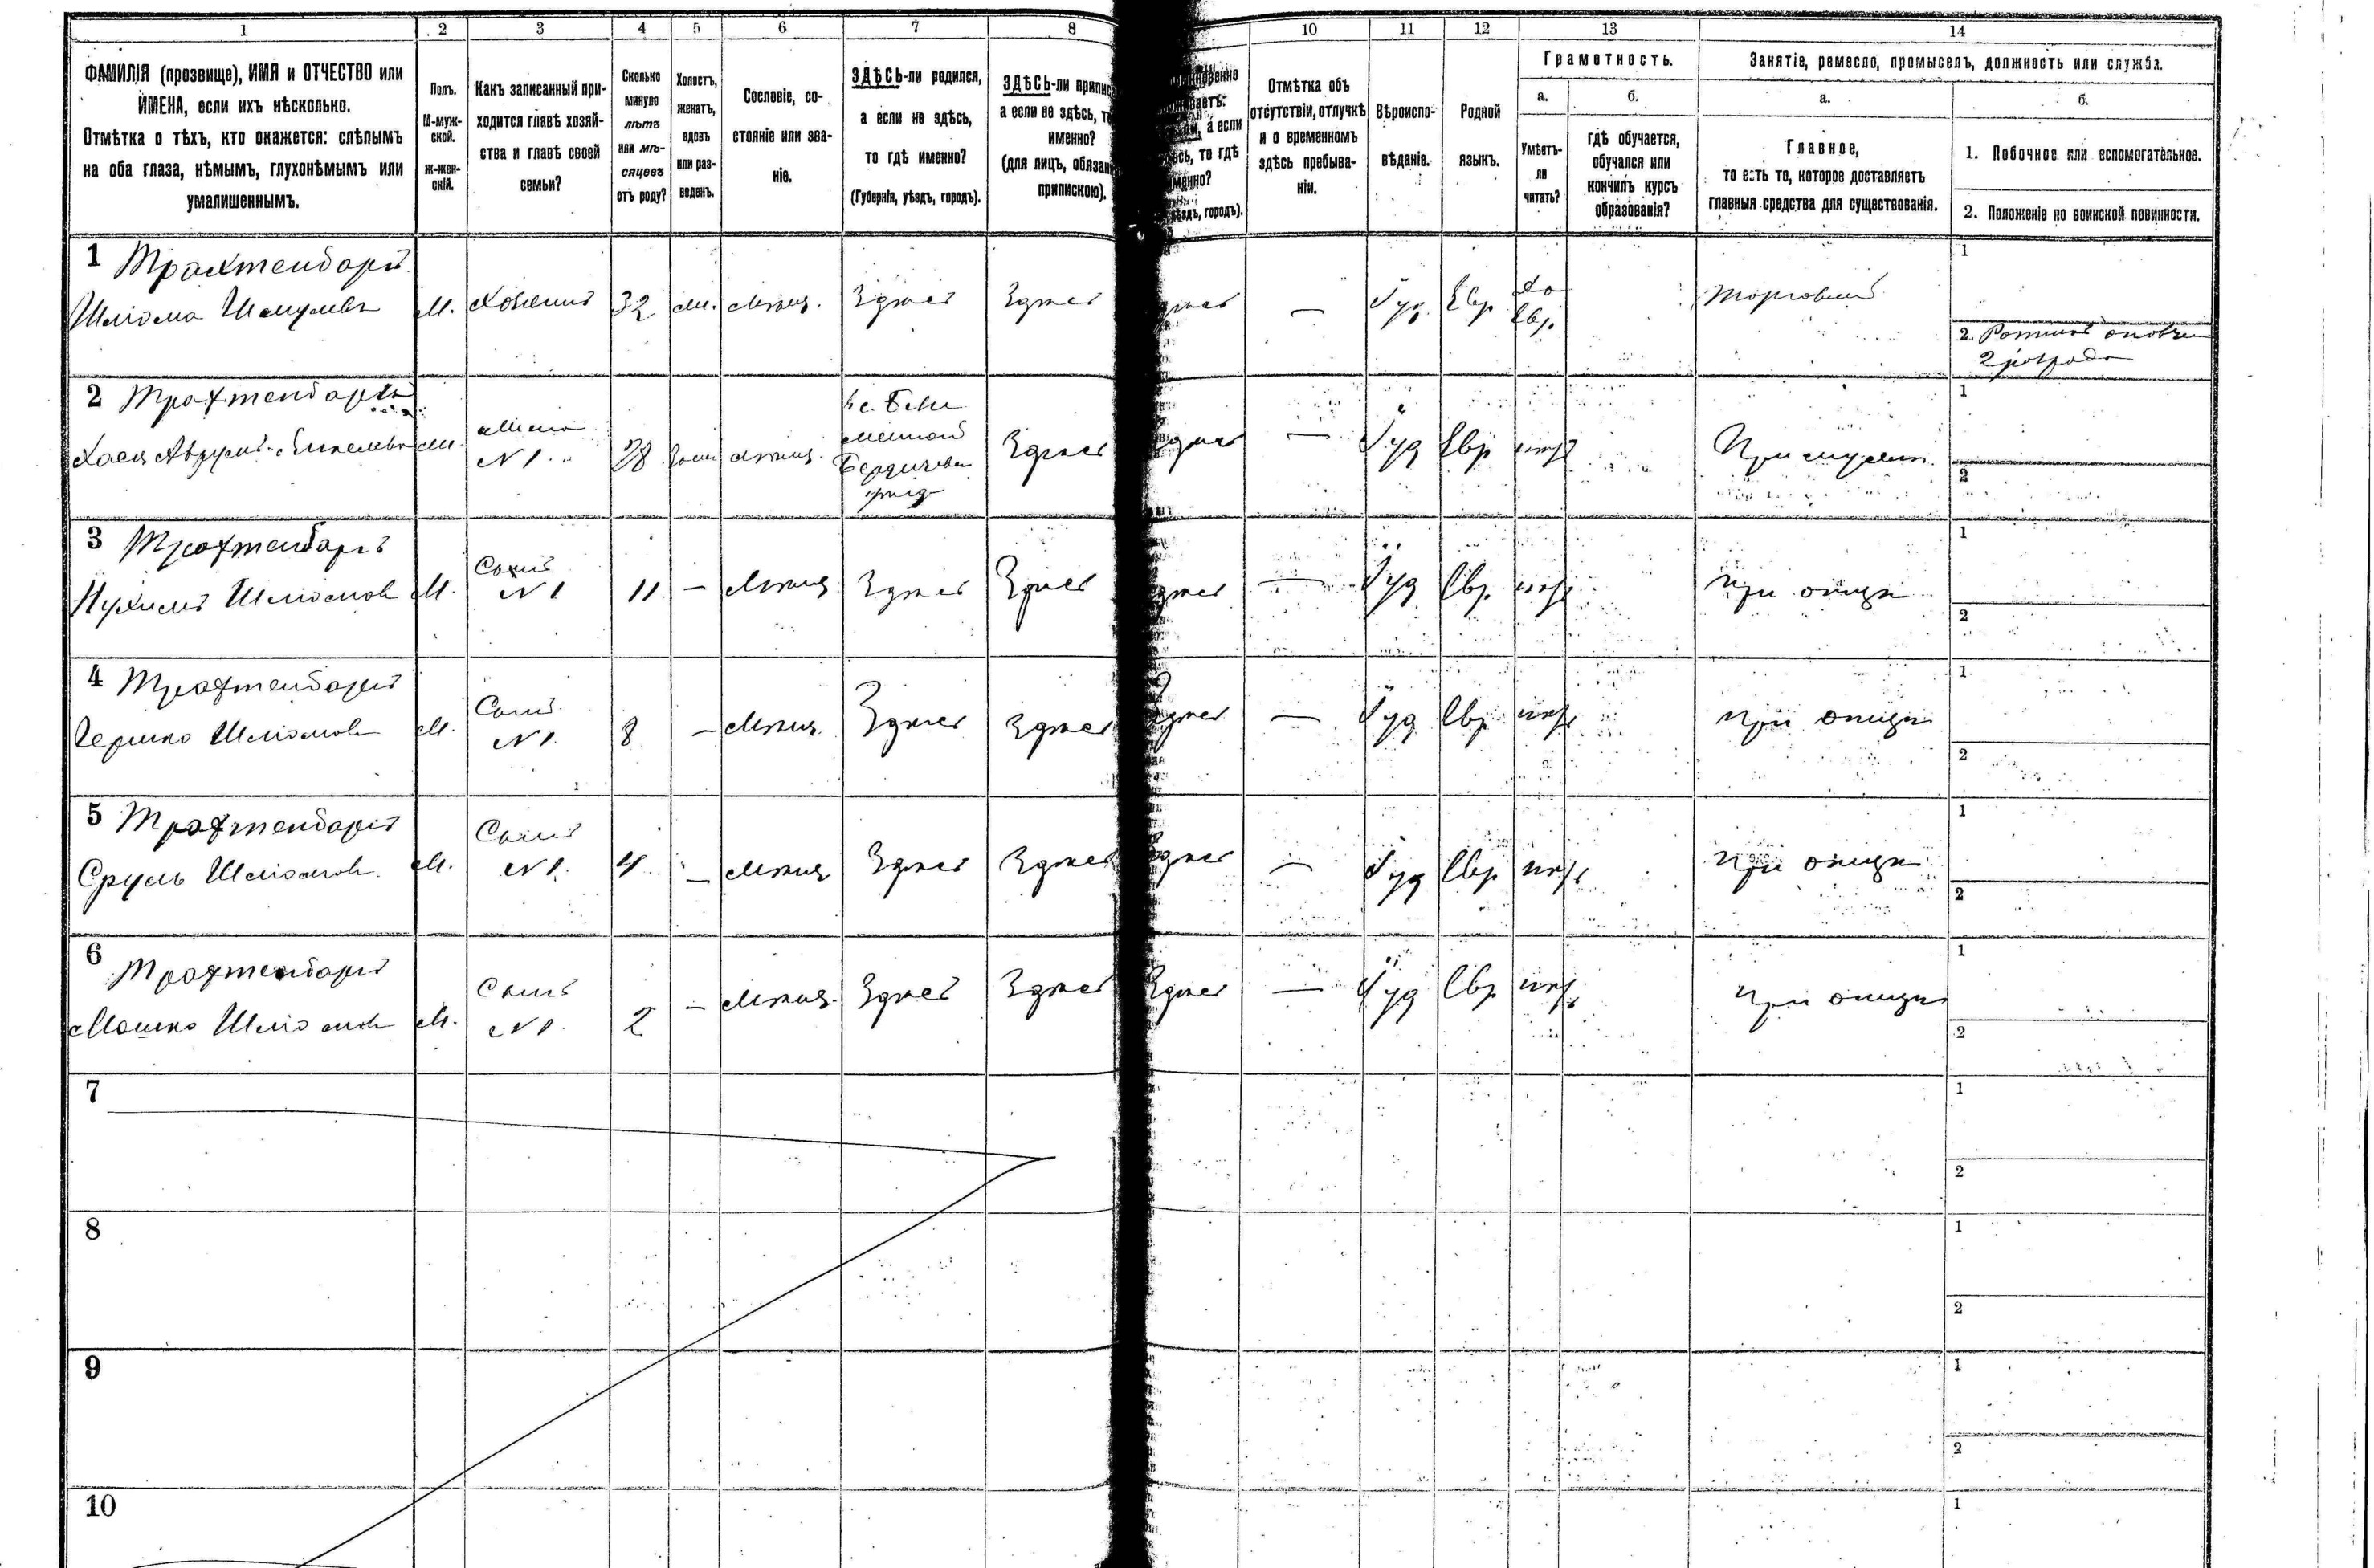 1 2 3 4 5 6 7 8 10 11 12 13 14
ФАМИЛІЯ (прозвище), ИМЯ и ОТЧЕСТВО или
ИМЕНА, если ихъ нѣсколько.
Отмѣтка о тѣхъ, кто окажется: слѣпымъ
на оба глаза, нѣмымъ, глухонѣмымъ или
умалишеннымъ.
Полъ.
М-муж-
ской.
ж-жен-
скій.
Какъ записанный при-
ходится главѣ хозяй-
ства и главѣ своей
семьи?
Сколько
минуло
лѣтъ
или мѣ-
сяцевъ
отъ роду?
Холостъ,
женатъ,
вдовъ
или раз-
веденъ.
Сословіе, со-
стояніе или зва-
ніе.
ЗДѢСЬ-ли родился,
а если не здѣсь,
то гдѣ именно?
(Губернія, уѣздъ, городъ).
ЗДѢСЬ-ли
а если не здѣсь,
именно?
(для лицъ,
припискою).
а если
то гдѣ
городъ).
Отмѣтка объ
отсутствіи, отлучкѣ
и о временномъ
здѣсь пребыва-
ніи.
Вѣроиспо-
вѣданіе.
Родной
языкъ.
Грамотность.
а.
Умѣетъ-
ли
читать?
б.
гдѣ обучается,
обучался или
кончилъ курсъ
образованія?
Занятіе, ремесло, промыселъ, должность или служба.
а.
Главное,
то есть то, которое доставляетъ
главныя средства для существованія.
б.
1. Побочное или вспомогательное.
2. Положеніе по воинской повинности.
1 Трахтенбаргъ
Шліома Шмулевъ М. Хозяинъ 32 Здѣсь Здѣсь — Іуд Евр да Евр. Торговый
1
2 Ратникъ
2 разряда
2 Трахтенбаргъ
Хася N 1 28 Бердичев Здѣсь — Іуд Евр
1
2
3 Трахтенбаргъ
Нухимъ Шліомов М. Сынъ N 1 11 — Мѣщ Здѣсь Здѣсь — Іуд Евр при отцѣ
1
2
4 Трахтенбаргъ
Гершко Шліомов М. Сынъ N 1. 8 — Мѣщ. Здѣсь Здѣсь — Іуд Евр при отцѣ
1
2
5 Трахтенбаргъ
Сруль Шліомов М. Сынъ N 1. 4 — Мѣщ Здѣсь Здѣсь — Іуд Евр при отцѣ
1
2
6 Трахтенбаргъ
Мошко Шліомов М. Сынъ N 1. 2 — Мѣщ. Здѣсь Здѣсь Здѣсь — Іуд Евр при отцѣ
1
2
7
1
2
8
1
2
9
1
2
10
1